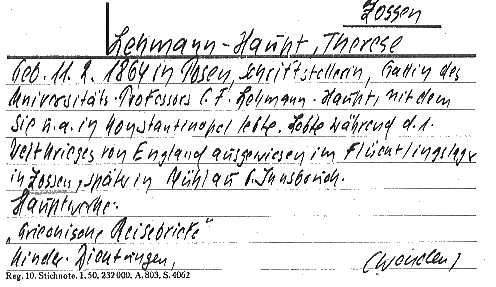 Zossen
Lehmann-Haupt, Therese
Geb. 11. 2. 1864 in Posen, Schriftstellerin, Gattin des
Universitäts-Professors C. F. Lehmann-Haupt, mit dem
sie u. a. in Konstantinopel lebte. Lebte während d. 1.
Weltkrieges von England ausgewiesen im Flüchtlingslager
in Zossen, später in Mühlau b. Innsbruck.
Hauptwerke:
„Griechische Reisebriefe“
Kinder-Dichtungen,
(wenden)
Reg. 10. Stichnote. I, 50. 232000. A. 803. S. 4062